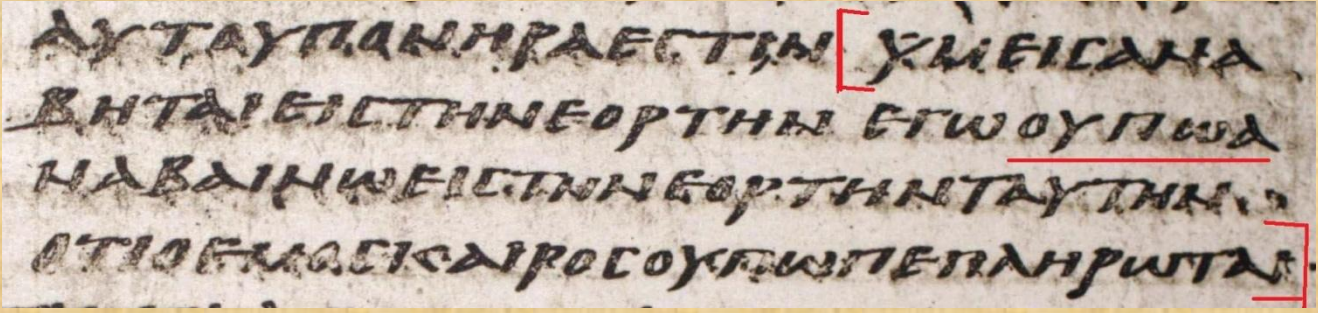 ΑΥΤΟΥΠΟΝΗΡΑΕΣΤΙΝ ΥΜΕΙΣΑΝΑ
ΒΗΤΑΙΕΙΣΤΗΝΕΟΡΤΗΝ ΕΓΩΟΥΠΩΑ
ΝΑΒΑΙΝΩΕΙΣΤΗΝΕΟΡΤΗΝΤΑΥΤΗΝ·
ΟΤΙΟΕΜΟΣΚΑΙΡΟΣΟΥΠΩΠΕΠΛΗΡΩΤΑΙ·